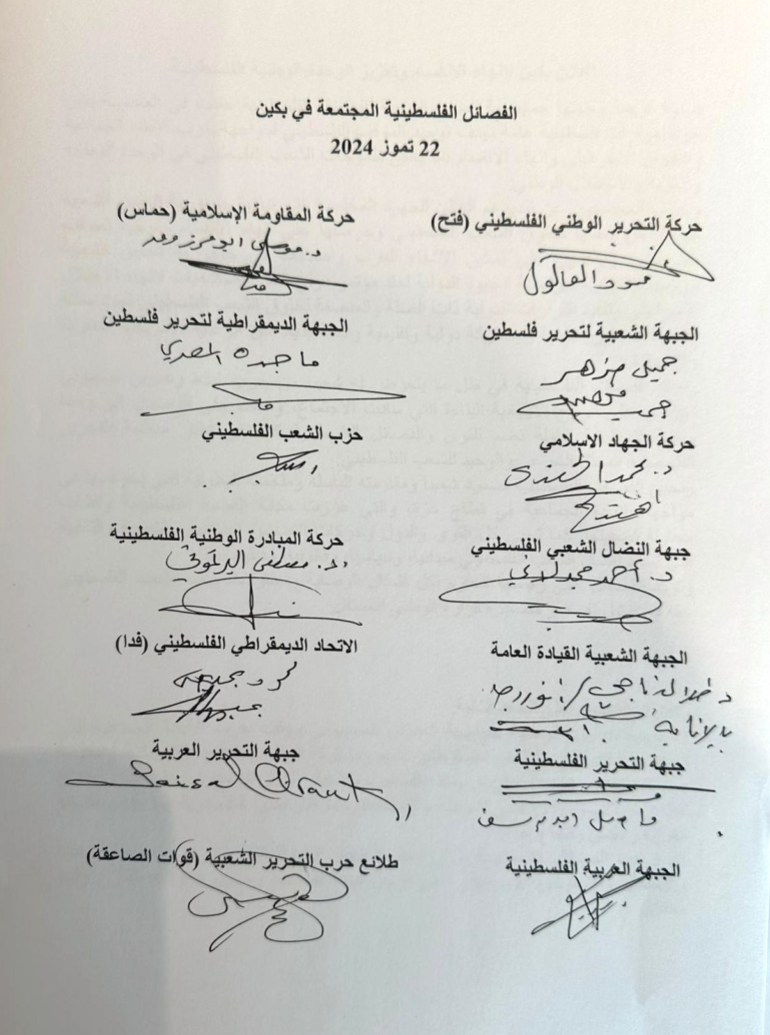 الفصائل الفلسطينية المجتمعة في بكين
22 تموز 2024
حركة التحرير الوطني الفلسطيني (فتح)
حركة المقاومة الإسلامية (حماس)
محمود العالول
د. موسى ابو مرزوق
الجبهة الشعبية لتحرير فلسطين
الجبهة الديمقراطية لتحرير فلسطين
جميل مزهر
ماجدة المصري
حركة الجهاد الاسلامي
حزب الشعب الفلسطيني
د. محمد الهندي
جبهة النضال الشعبي الفلسطيني
حركة المبادرة الوطنية الفلسطينية
د. أحمد مجدلاني
د. مصطفى البرغوثي
الجبهة الشعبية القيادة العامة
الاتحاد الديمقراطي الفلسطيني (فدا)
د. طلال ناجي / انور رجا
بالإنابة
جبهة التحرير الفلسطينية
جبهة التحرير العربية
الجبهة العربية الفلسطينية
طلائع حرب التحرير الشعبية (قوات الصاعقة)